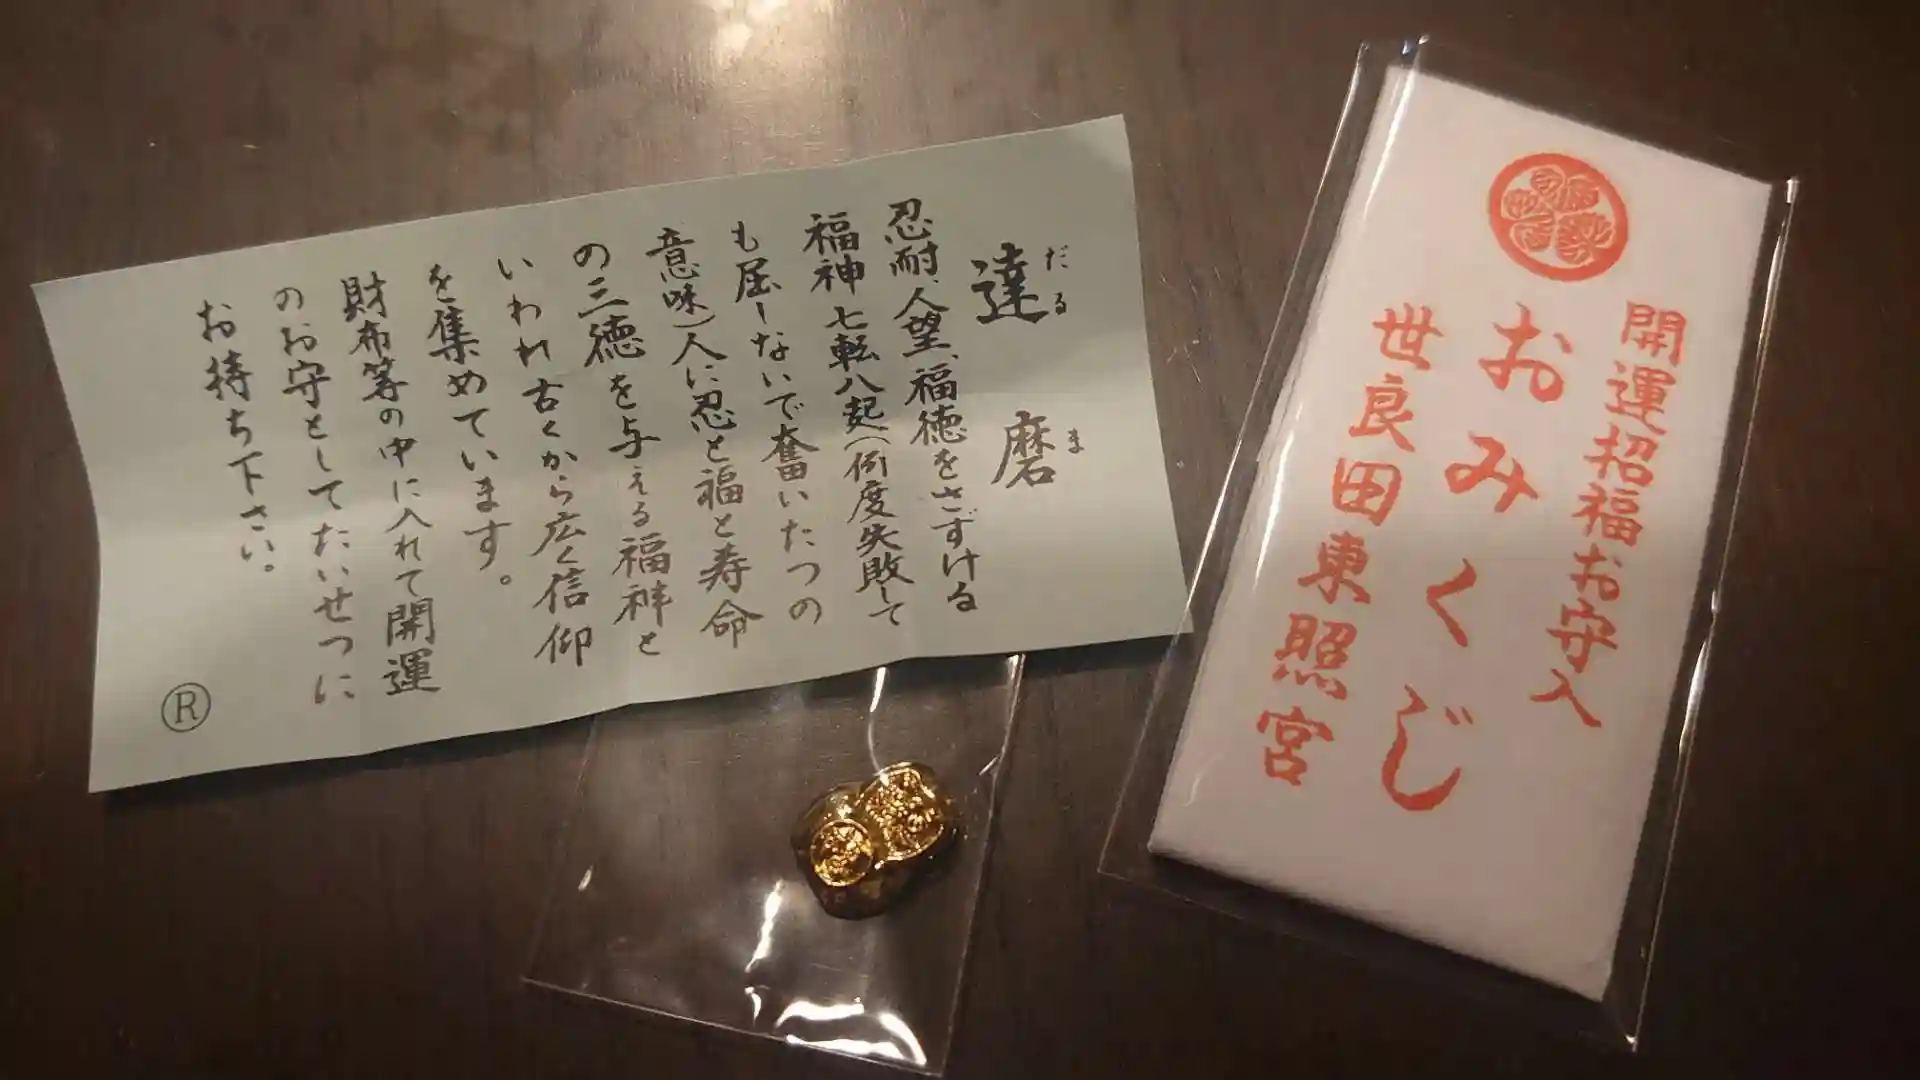 達磨
だるま
忍耐、人望、福徳をさずける
福神 七転八起(何度失敗して
も屈しないで奮いたつの
意味)人に忍と福と寿命
の三徳を与える福神と
いわれ古くから広く信仰
を集めています。
財布等の中に入れて開運
のお守としてたいせつに
お持ち下さい。
Ⓡ
開運招福お守入
おみくじ
世良田東照宮